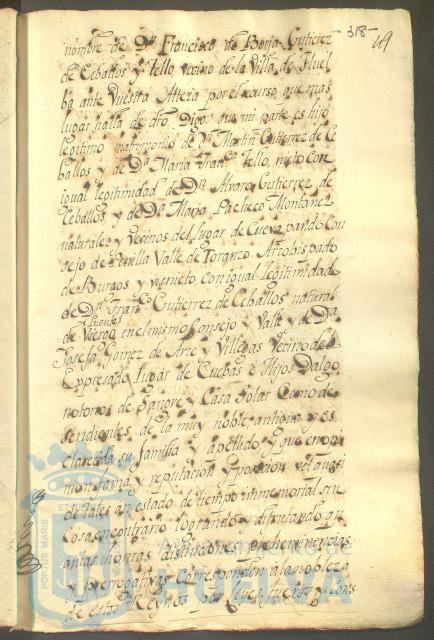 318
49
nombre de Dn. Francisco de Borja Gutierez
de Ceballos y tello, vecino de la Villa de Huel
ba ante Vuestra Alteza por el recurso que mas
lugar halla de dro. Digo: que mi parte es hijo
legitimo y matrimonio de Dn. Martin Gutierrez de Ce
ballos y de Da. Maria Franca. tello, nieto con
igual legitimidad de Dn. Alvaro Gutierrez de
Ceballos, y de Da. Maria Pacheco Montañez
naturales y Vecinos del lugar de Cueva pando Con
sejo de Penilla Valle de Toranzo Arzobispado
de Burgos y visnieto con igual legitimidad
de Dn. Franco. Gutierrez de Ceballos natural
de Puente
Viesgo en el mismo Consejo y Valle y de Da.
Josefa Gomez de Arce y Villegas Vecino del
Expresado lugar de Cuebas e Hijos Dalgo
notorios de Sangre y Casa Solar Como de
sendientes de la muy noble antigua y es
clarecida su familia y apellido y que en
fama y reputacion y posesion vel quasi
de tales an estado de tiempo inmemorial sin
Cosa en contrario logrando y disfrutando qu
antas honras distinciones prehemi­nencias
y prerrogativas Corresponden a la nobleza
de estos Reynos por leyes fueros y
POR TUS MAROS
Ayuntamiento de
HUELVA